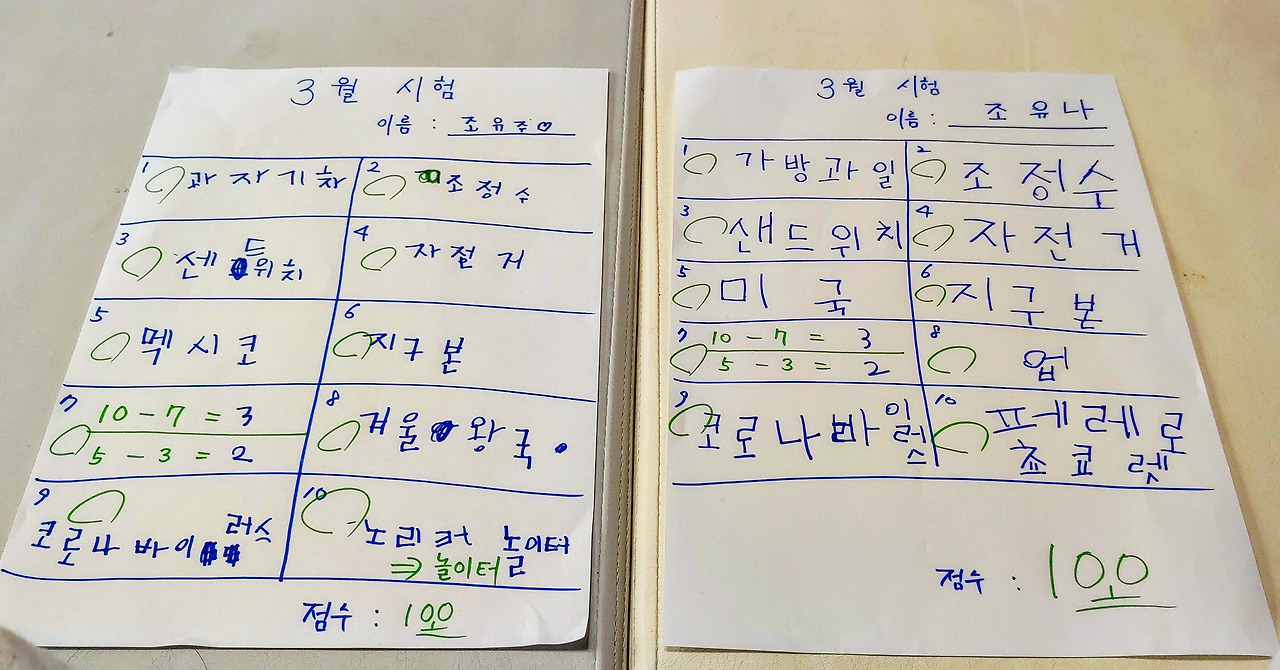 3월 시험
이름 : 조유주♡
1 과자기차
2 조정수
3 센드위치
4 자절거
5 멕시코
6 지구본
7 10 - 7 = 3
5 - 3 = 2
8 겨울왕국.
9 코로나바이러스
10 노리커 놀이터
⇒ 놀이터
점수 : 100
3월 시험
이름 : 조유나
1 가방과일
2 조정수
3 샌드위치
4 자전거
5 미국
6 지구본
7 10 - 7 = 3
5 - 3 = 2
8 업
9 코로나바이러스
10 프레레로
쵸쿄렛
점수 : 100